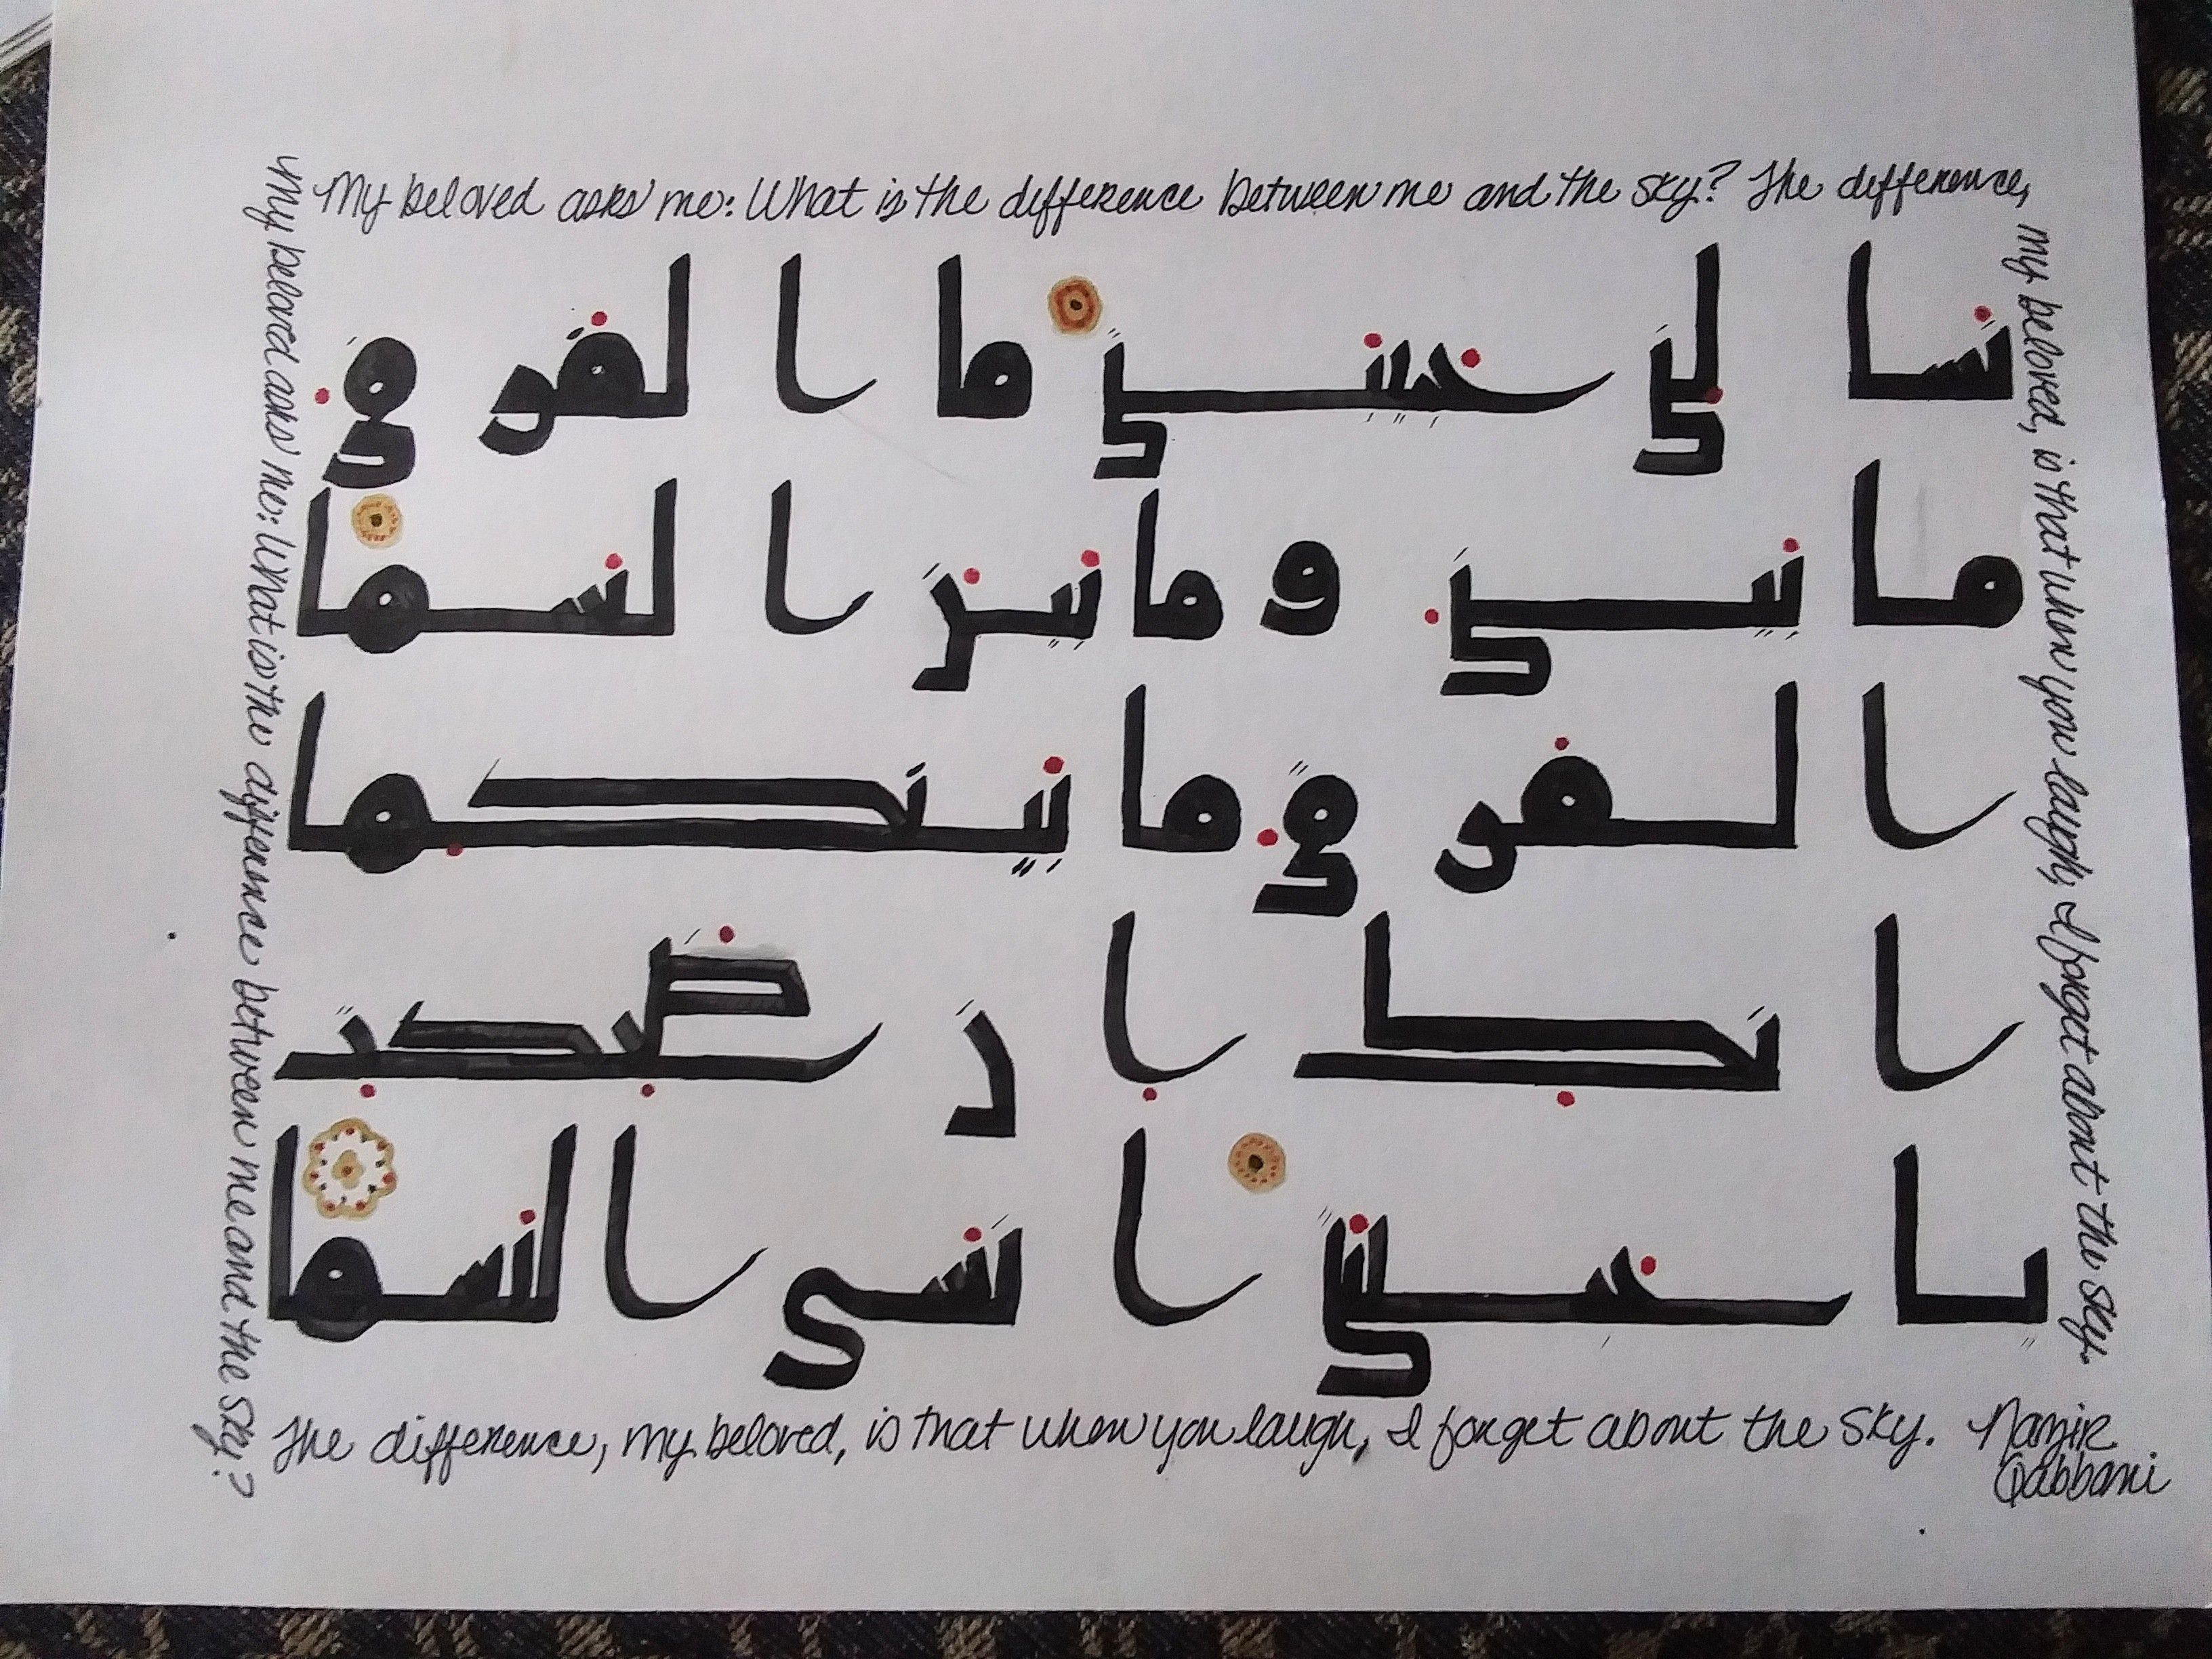 My beloved asks me: What is the difference between me and the sky? The difference,
my beloved, is that when you laugh, I forget about the sky.
تسالني حبيبتي ما الفرق
ما بيني وما بين السما
الفرق ما بينكما
انك ان ضحكت
يا حبيبتي انسى السما
My beloved asks me: What is the difference between me and the sky?
The difference, my beloved, is that when you laugh, I forget about the sky. Nazir
Qabbani